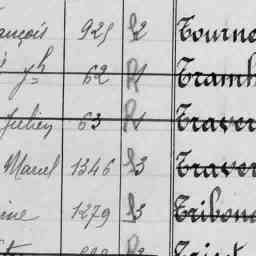 ançois 925 R2 Tourne
Jh 62 R1 Tramb
Julien 63 R1 Traver
Marcel 1346 R3 Traver
ine 1279 R3 Tribou